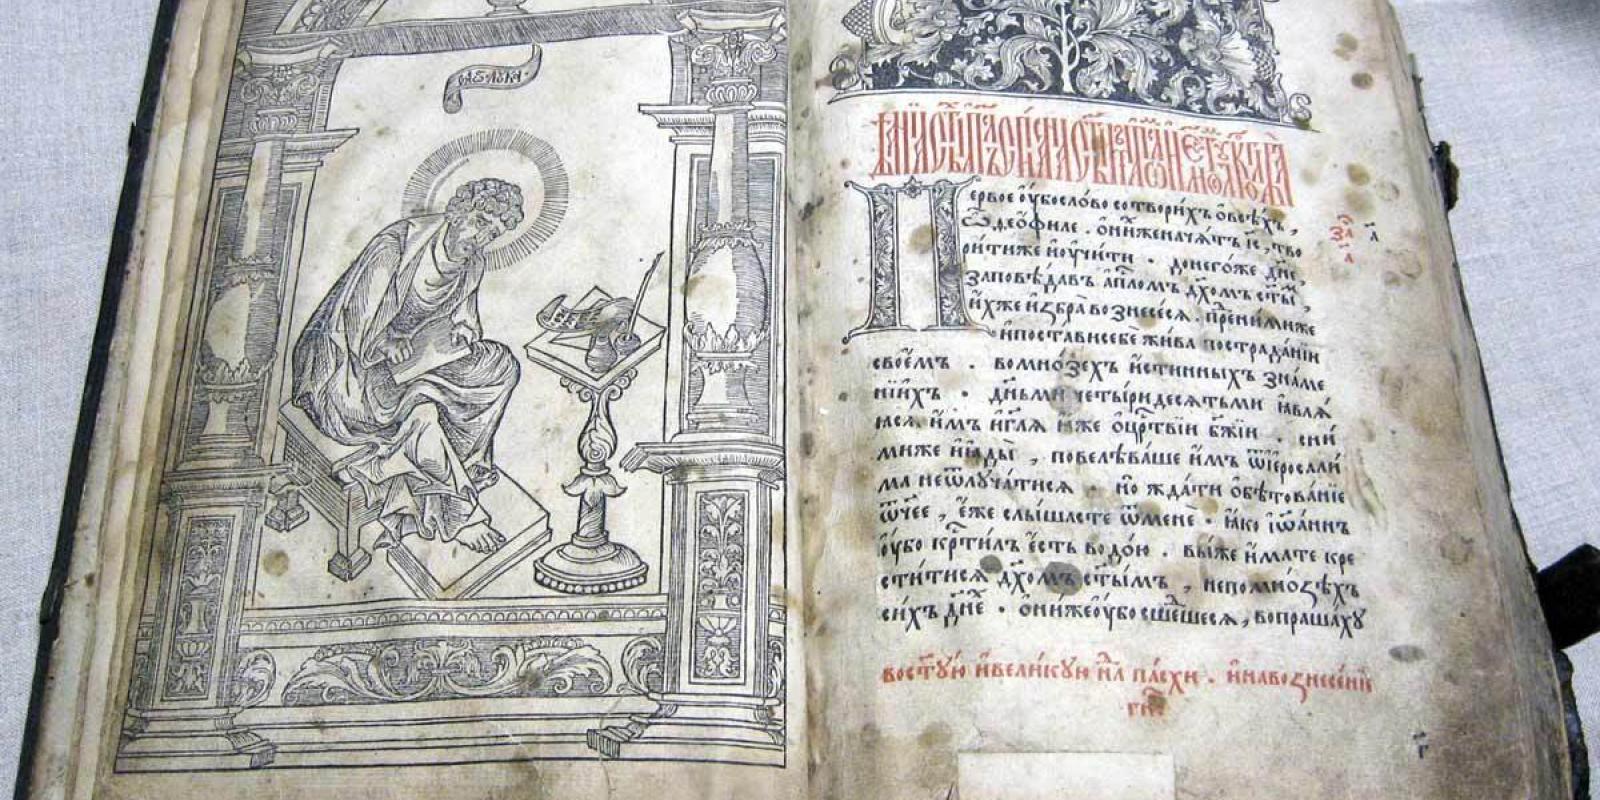 лꙋка
первоеꙋ҆бослово сотвори́хъ ѡ҆всѣ́хъ,
ѽ ѳео́филе . ѡ҆ни́женача́тъ і҆с҃, тво
ри́тиже и҆ꙋ҆чи́ти . донего́же дн҃е,
заповѣ́давъ а҆пⷭ҇ломъ дх҃омъ ст҃ы́мъ,
и҆́хже и҆ꙁбра̀ воꙁнесе́сѧ . пре́дни́миже
и҆поста́висебѐ жи́ва пострада́нїи
свое́мъ . вомно́ꙁехъ и҆́стинныхъ ꙁна́ме
нїихъ . дн҃ьми четы́ридесѧтьми ꙗ҆влѧ́
ꙗсѧ и҆̀мъ и҆гл҃ѧ ꙗ҆́же ѡ҆цр҃твїи бж҃їи . сни́
миже и҆ꙗ҆ды̀ , повелѣ́ваше и҆̀мъ ѿїєросали́
ма неѿлꙋча́тисѧ . но жда́ти ѡ҆бѣтова́нїе
ѻ҆́ч҃ее , є҆́же слы́шасте ѿменѐ . ꙗ҆́ко і҆ѡа́ннъ
ꙋ҆́бо крⷭ҇ти́лъ є҆́сть водо́ю . вы́же и҆́мате кре
сти́тисѧ дх҃омъ ст҃ы́мъ , непомно́ꙁѣхъ
си́хъ дн҃е . ѡ҆ни́жеꙋ҆́бо сше́дшесѧ, вопраша́хꙋ
вост҃ꙋ́ю и҆вели́кꙋю нлⷣю па́схи . и҆навоꙁнесе́нїе
гнⷭ҇е